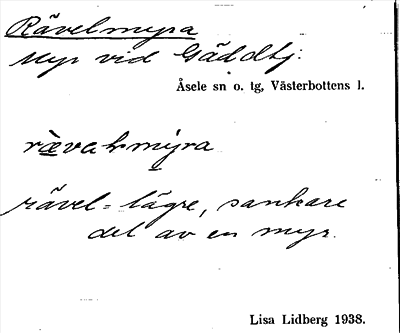 Rävelmyra
Myr vid Gäddtj:
Åsele sn o. tg, Västerbottens l.
rävel = lägre, sankare
del av en myr.
Lisa Lidberg 1938.